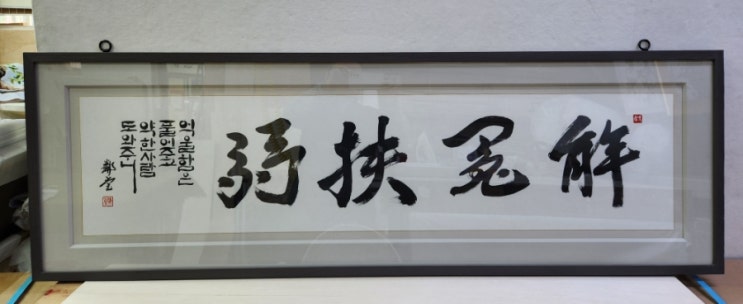 解冤扶弱
억울함은
풀어주고
약한사람
도와주니